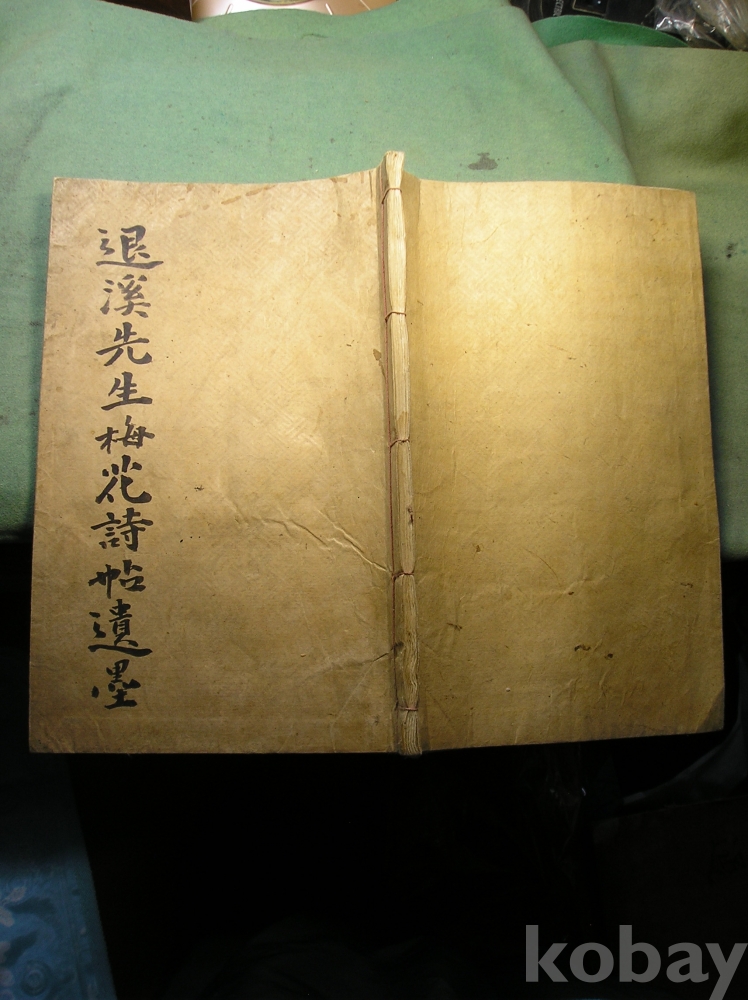 退溪先生梅花詩帖遺墨
kobay